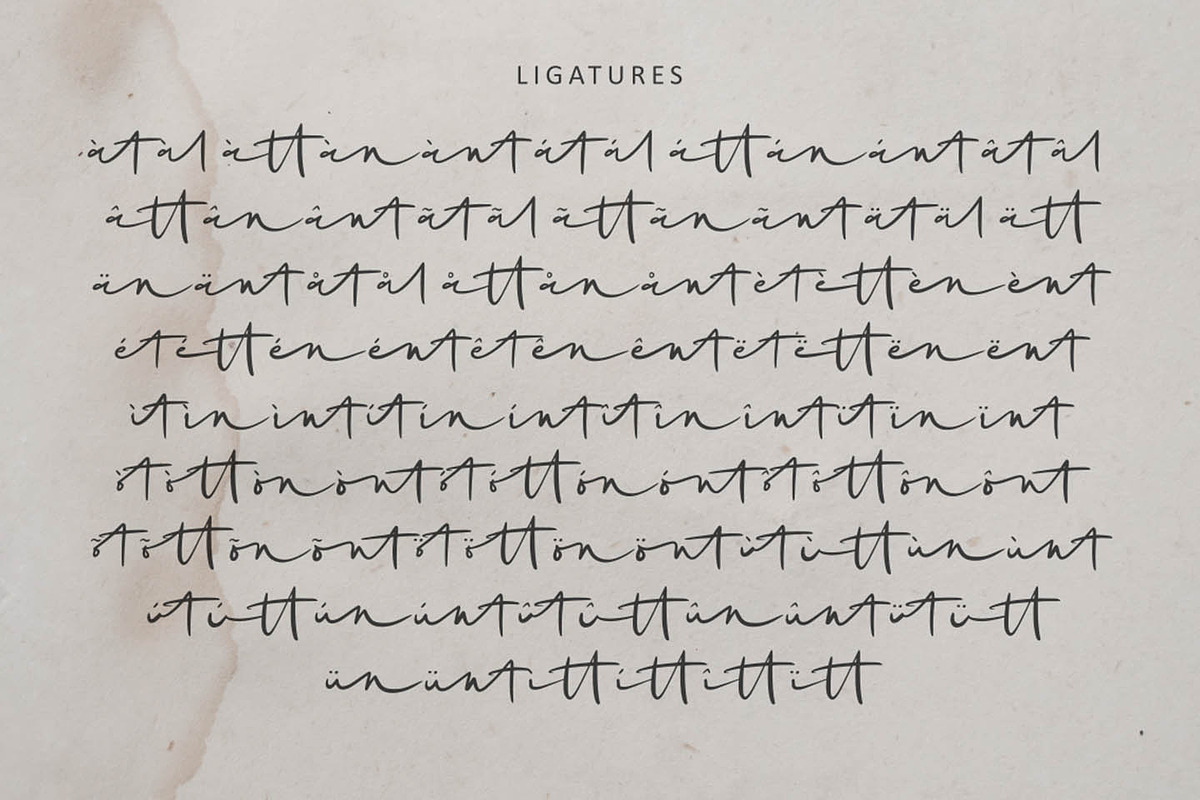 LIGATURES
àtàl àttàn àntátál áttán ántâtâl
âttân ântãtãl ãttãn ãntätäl ätt
än äntåtål åttån åntètèttèn ènt
ététtén éntêtên êntëtëttën ënt
ìtìn ìntítín íntîtîn întïtïn ïnt
òtòttòn òntótóttón óntôtôttôn ônt
õtõttõn õntötöttön öntùtùttùn ùnt
útúttún úntûtûttûn ûntütütt
ün üntìttíttîttïtt